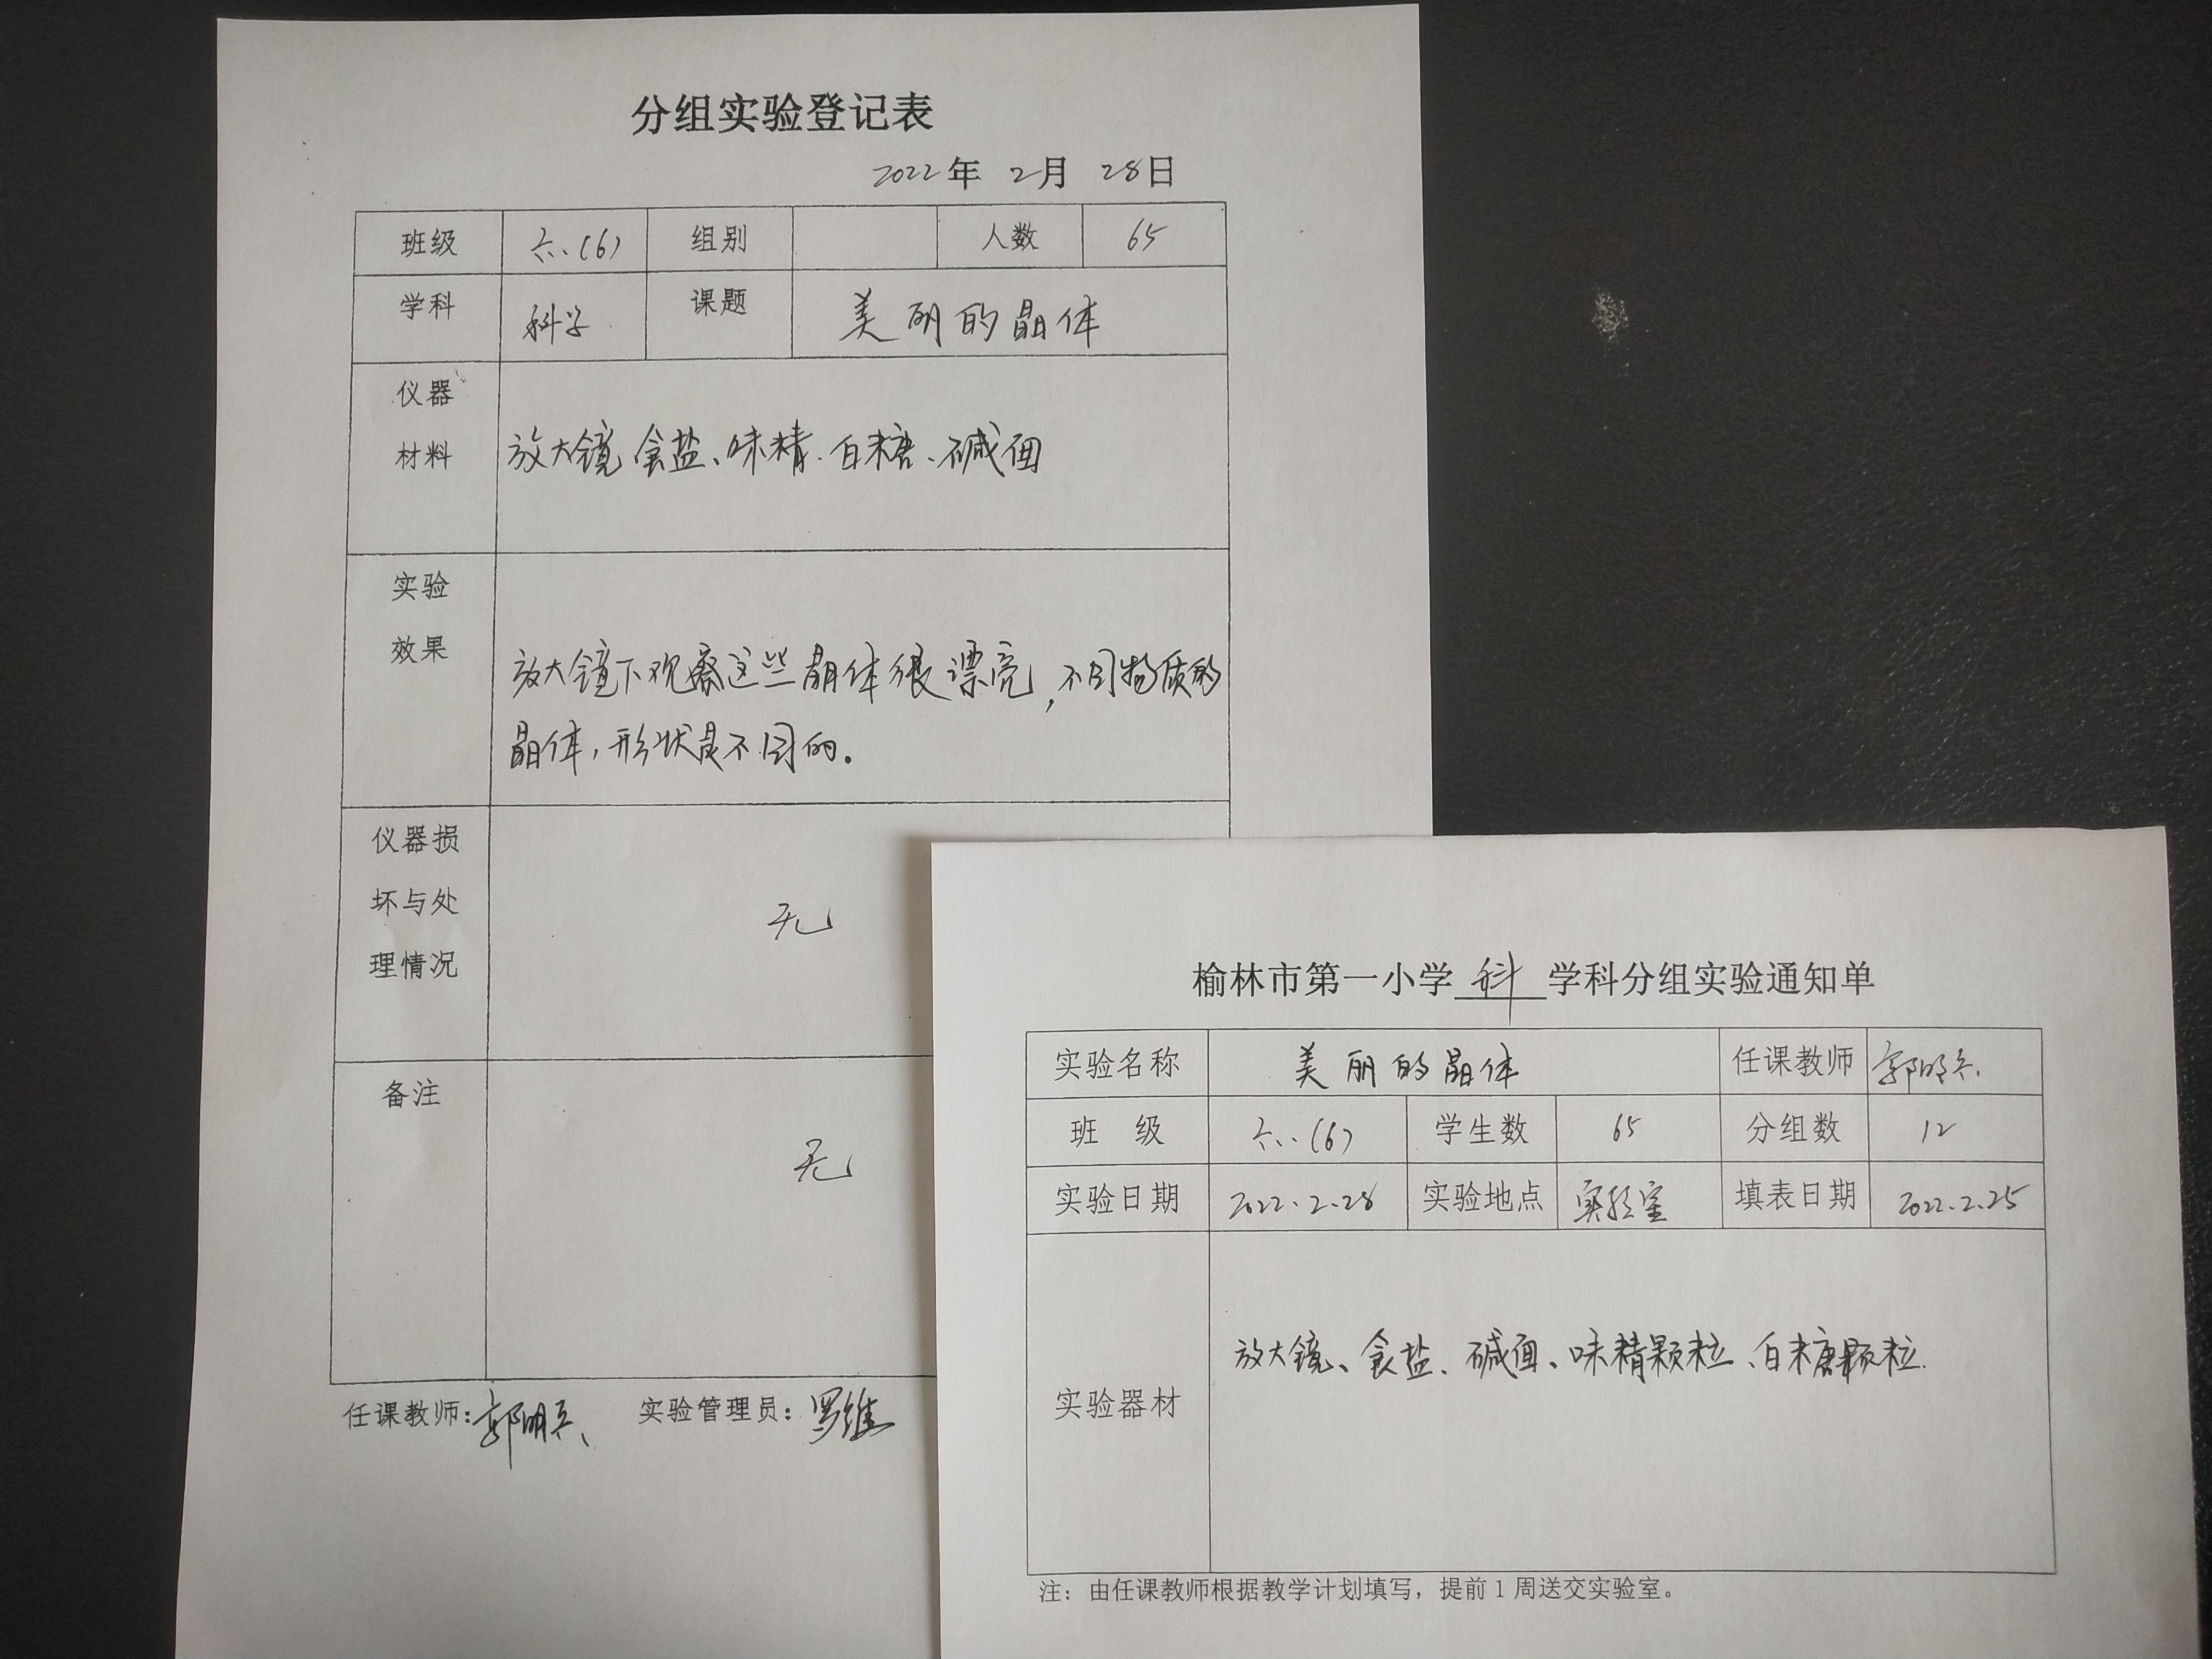 分组实验登记表
2022年 2月 28日
班级 六.(6) 组别 人数 65
学科 科学 课题 美丽的晶体
仪器
材料
放大镜 食盐、味精.白糖、碱面
实验
效果
放大镜下观察这些晶体很漂亮,不同物质的
晶体,形状是不同的。
仪器损
坏与处
理情况
无
备注
无
任课教师:郭明兵 实验管理员:罗维
榆林市第一小学 科 学科分组实验通知单
实验名称 美丽的晶体 任课教师 郭明兵
班 级 六.(6) 学生数 65 分组数 12
实验日期 2022.2.28 实验地点 实验室 填表日期 2022.2.25
实验器材
放大镜、食盐、碱面、味精颗粒、白糖颗粒.
注:由任课教师根据教学计划填写,提前1周送交实验室。